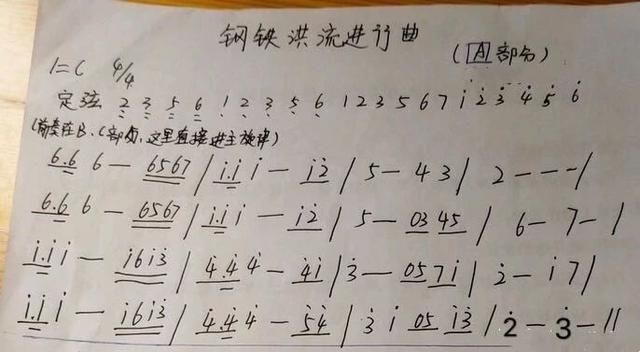 钢铁洪流进行曲
(A部分)
1=C 4/4
定弦 2 3 5 6 1 2 3 5 6 1 2 3 5 6 7 i 2 3 4 5 6
(前奏在B、C部分,这里直接进主旋律)
6.6 6 — 6567 / i.i i — i2 / 5 — 4 3 / 2 - - - /
6.6 6 — 6567 / i.i i — i2 / 5 — 03 45 / 6 - 7 - /
i.i i — i6i3 / 4.4 4 — 4i / 3 — 05 7i / 2 - i 7 /
i.i i — i6i3 / 4.4 4 — 54 / 3 i 05 i3 / 2 - 3 - //